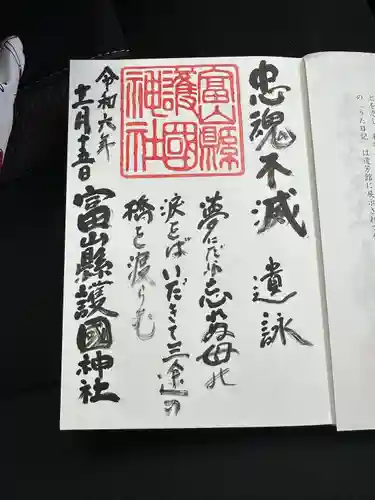 忠魂不滅
遺詠
夢にだに忘れぬ母の
涙をばいだきて三途の
橋を渡りなむ
富山縣
護國
神社
富山縣護國神社
令和六年
十二月十五日
の「うた日記」は遺芳館に展示され